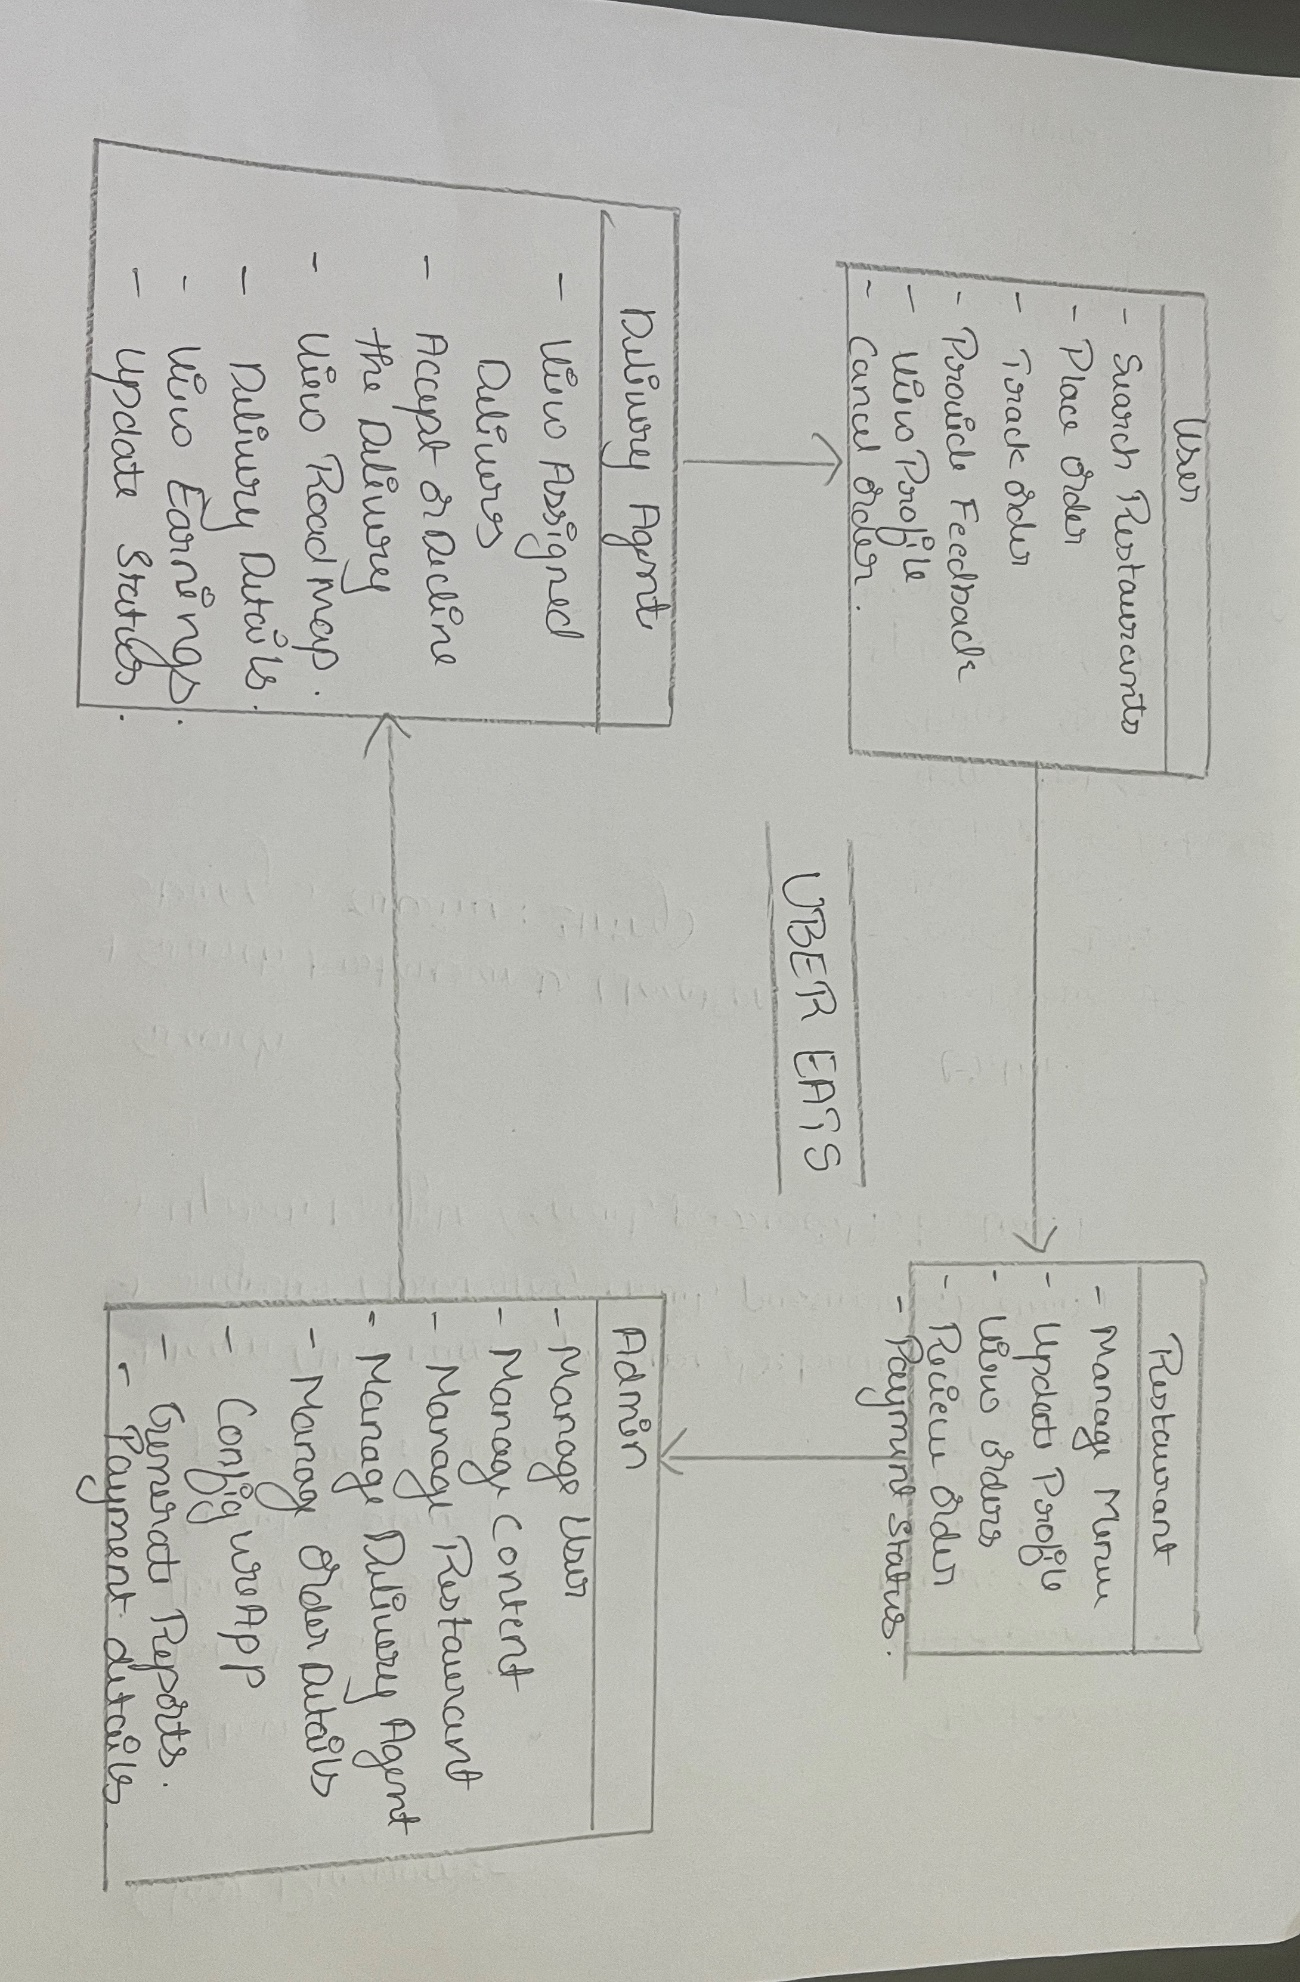 User
- Search Restaurants
- Place Order
- Track Order
- Provide Feedback
- View Profile
- Cancel Order.
Restaurant
- Manage Menu
- Update Profile
- View Orders
- Review Order
- Payment Status.
UBER EATS
Delivery Agent
- View Assigned
Delivers
- Accept or Decline
the Delivery
- View Road Map.
- Delivery Details.
- View Earnings.
- Update Status.
Admin
- Manage User
- Manage Content
- Manage Restaurant
- Manage Delivery Agent
- Manage Order Details
- Configure App
- Generate Reports.
- Payment details.